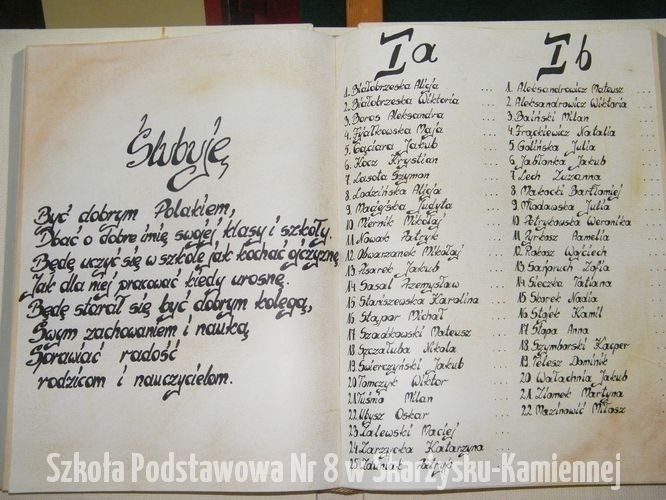 Ślubuję
Być dobrym Polakiem,
Dbać o dobre imię swojej klasy i szkoły.
Będę uczyć się w szkole jak kochać ojczyznę
Jak dla niej pracować kiedy urosnę.
Będę starał się być dobrym kolegą,
Swym zachowaniem i nauką
Sprawiać radość
rodzicom i nauczycielom.
Ia
1. Białobrzeska Alicja
2. Białobrzeska Wiktoria
3. Boros Aleksandra
4. Fijałkowska Maja
5. Gajdara Jakub
6. Kocz Krystian
7. Lasota Szymon
8. Lodzińska Alicja
9. Maciejska Judyta
10 Miernik Mikołaj
11 Nowak Patryk
12 Obwarzanek Mikołaj
13 Pisarek Jakub
14 Sasal Przemysław
15 Staniszewska Karolina
16 Stojpar Michał
17 Szadkowski Mateusz
18 Szczałuba Nikola
19 Świerczyński Jakub
20 Tomczyk Wiktor
21 Tuśnio Milan
22 Ubysz Oskar
23 Zalewski Maciej
24 Zarzycka Katarzyna
25
Ib
1. Aleksandrowicz Mateusz
2. Aleksandrowicz Wiktoria
3 Baiński Milan
4 Frąckiewicz Natalia
5 Golińska Julia
6 Jabłonka Jakub
7 Lech Zuzanna
8 Makocki Bartłomiej
9 Miodawska Julia
10 Petrykowska Weronika
11 Pyrkosz Pamelia
12 Rokosz Wojciech
13 Sanpruch Zofia
14 Sieczka Tatiana
15 Skorek Nadia
16 Stojek Kamil
17 Stopa Anna
18 Szymborski Kacper
19 Telesz Dominik
20 Wałachnia Jakub
21 Ziomek Martyna
22 Mazinowić Miłosz
Szkoła Podstawowa Nr 8 w Skarżysku-Kamiennej